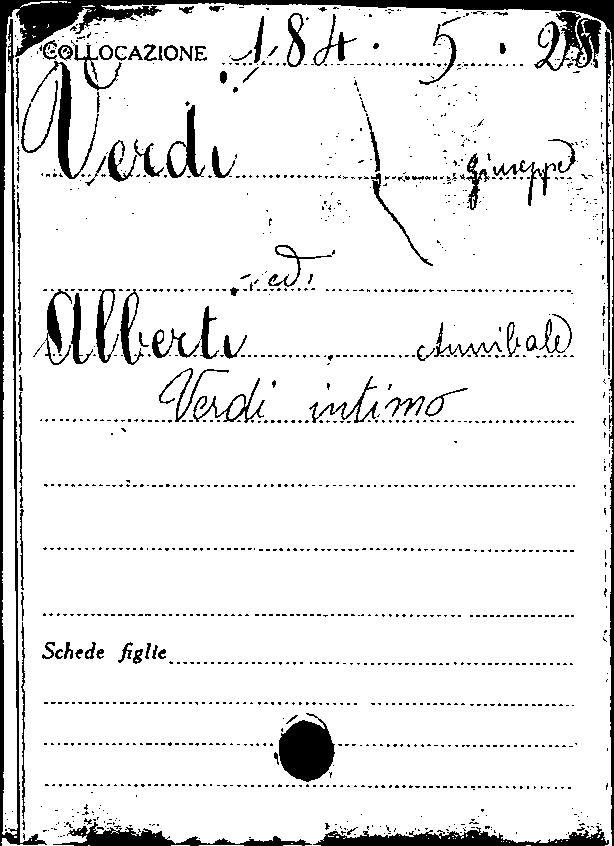 COLLOCAZIONE 184. 5. 28
Verdi Giuseppe
ved.
Alberti Annibale
Verdi intimo
Schede figlie